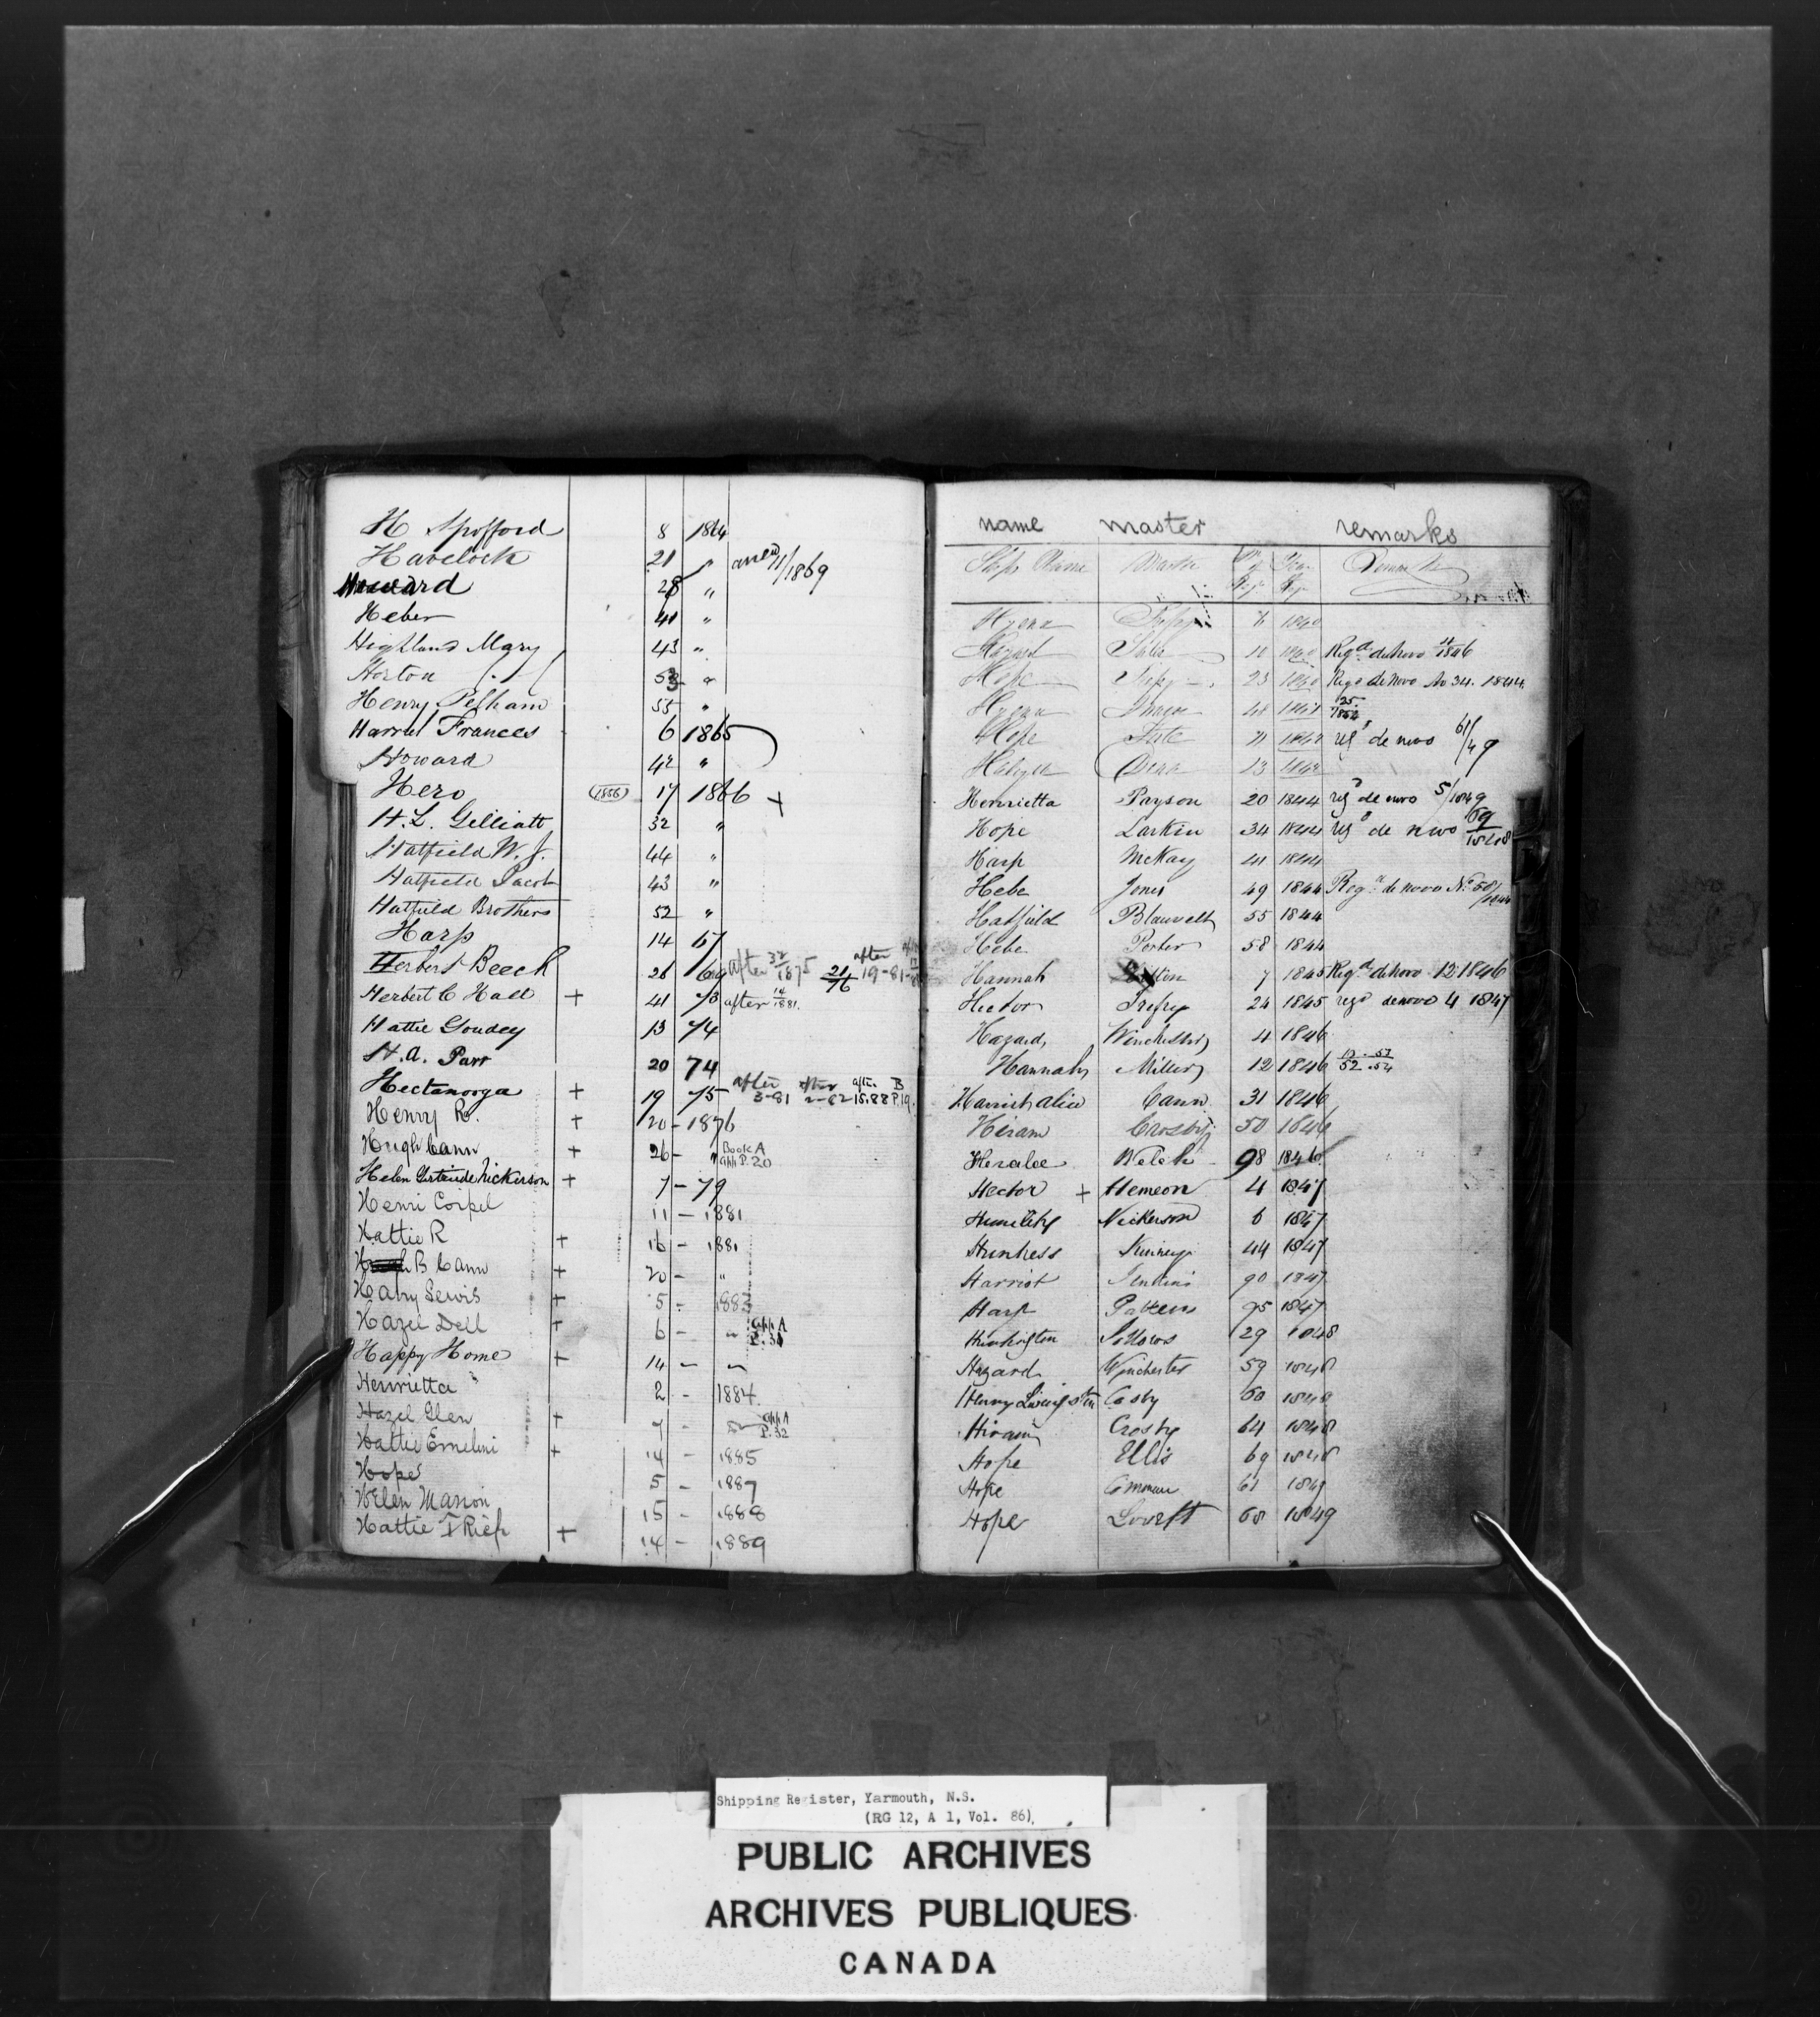 H Spofford 8 1864
Havelock 21 " anew 11/1869
Howard 28 "
Heber 41 "
Highland Mary 43 "
Horton 53 "
Henry Pelham 55 "
Harriet Frances 6 1865
Howard 42 "
Hero (1856) 17 1866 +
H. L. Gilliatt 32 "
Hatfield W. J. 44 "
Hatfield Jacob 43 "
Hatfield Brothers 52 "
Harp 14 67
Herbert Beech 26 69 after 1875 21/76 after 19-81
Herbert C Hall + 41 73 after 14/1881.
Hattie Goudey 13 74
H. A. Parr 20 74
Hectanooga + 19 75 after 3-81 after 2-82 aftr. 15.88 B P.19.
Henry R. + 20 - 1876
Hugh Cann + 26 - " Book A App P. 20
Helen Gertrude Nickerson + 7 - 79
Henri 11 - 1881
Hattie R + 16 - 1881
B Cann + 20 - "
Harry Lewis + 5 - 1883
Hazel Dell + 6 - " App A P. 31
Happy Home + 14 - "
Henrietta 2 - 1884
Hazel Glen + 7 - App A P. 32
Hattie Emeline + 14 - 1885
Hope 5 - 1887
Helen Marion 15 - 1888
Hattie I + 14 - 1889
name master remarks
Ships Name Master Remarks
Hyena 1840
Hazard 1840 Regd. de novo 1846
Hope 23 1840 Regd de Novo No 34. 1844
Hyena 48
Hope regd de novo 61/49
Henrietta Payson 20 1844 regd de novo 5/1849
Hope Larkin 34 1844 regd de novo
Harp McKay 41 1844
Hebe Jones 49 1844 Regd. de novo No. 58/1844
Hatfield Blauvelt 55 1844
Hebe Porter 58 1844
Hannah 7 1845 Regd. de novo 12 1846
Hector Trefry 24 1845 regd de novo 4 1847
Hazard Winchester 4 1846
Hannah Miller 12 1846
Harriet Alice Cann 31 1846
Hiram Crosby 50 1846
Welch 98 1846
Hector + Hemeon 4 1847
Humility Nickerson 6 1847
Huntress Kinney 44 1847
Harriot Jenkins 90 1847
Harp Patten 95 1847
Huntington 29 1848
Hazard Winchester 59 1848
Henry Livingston 60 1848
Hiram Crosby 64 1848
Hope Ellis 69 1848
Hope 61 1849
Hope Lovett 68 1849
Shipping Register, Yarmouth, N.S.
(RG 12, A 1, Vol. 86)
PUBLIC ARCHIVES
ARCHIVES PUBLIQUES
CANADA